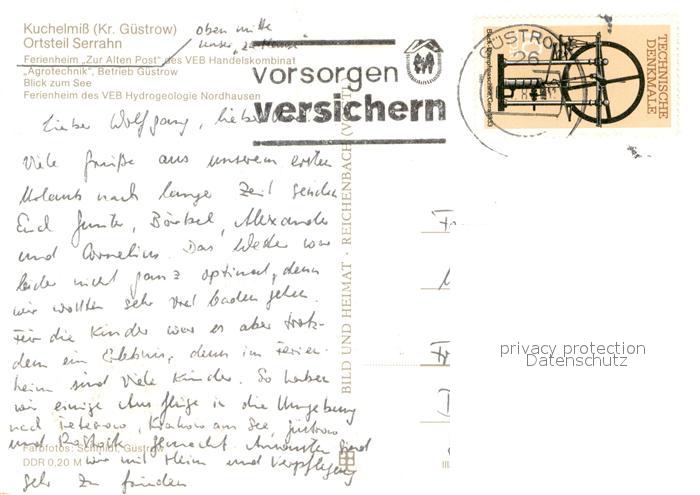 Kuchelmiß (Kr. Güstrow)
Ortsteil Serrahn
oben mitte
unser „zu Hause"
Ferienheim „Zur Alten Post" des VEB Handelskombinat
„Agrotechnik", Betrieb Güstrow
Blick zum See
Ferienheim des VEB Hydrogeologie Nordhausen
vorsorgen
versichern
GÜSTROW
26
TECHNISCHE
DENKMALE
Lieber Wolfgang, liebe
Viele Grüße aus unserem ersten
Urlaub nach lange Zeit senden
Euch Gunter, Bärbel, Alexander
und Cornelius. Das Wetter war
leider nicht ganz optimal, denn
wir wollten sehr viel baden gehen.
Für die Kinder war es aber trotz-
dem ein Erlebnis, denn im Ferien-
heim sind viele Kinder. So haben
wir einige Ausflüge in die Umgebung
nach Teterow, Krakow am See, Güstrow
und Rostock gemacht. Ansonsten sind
wir mit Heim und Verpflegung
sehr zu frieden
Farbfotos: Schmidt, Güstrow
DDR 0,20 M
BILD UND HEIMAT · REICHENBACH (V
privacy protection
Datenschutz